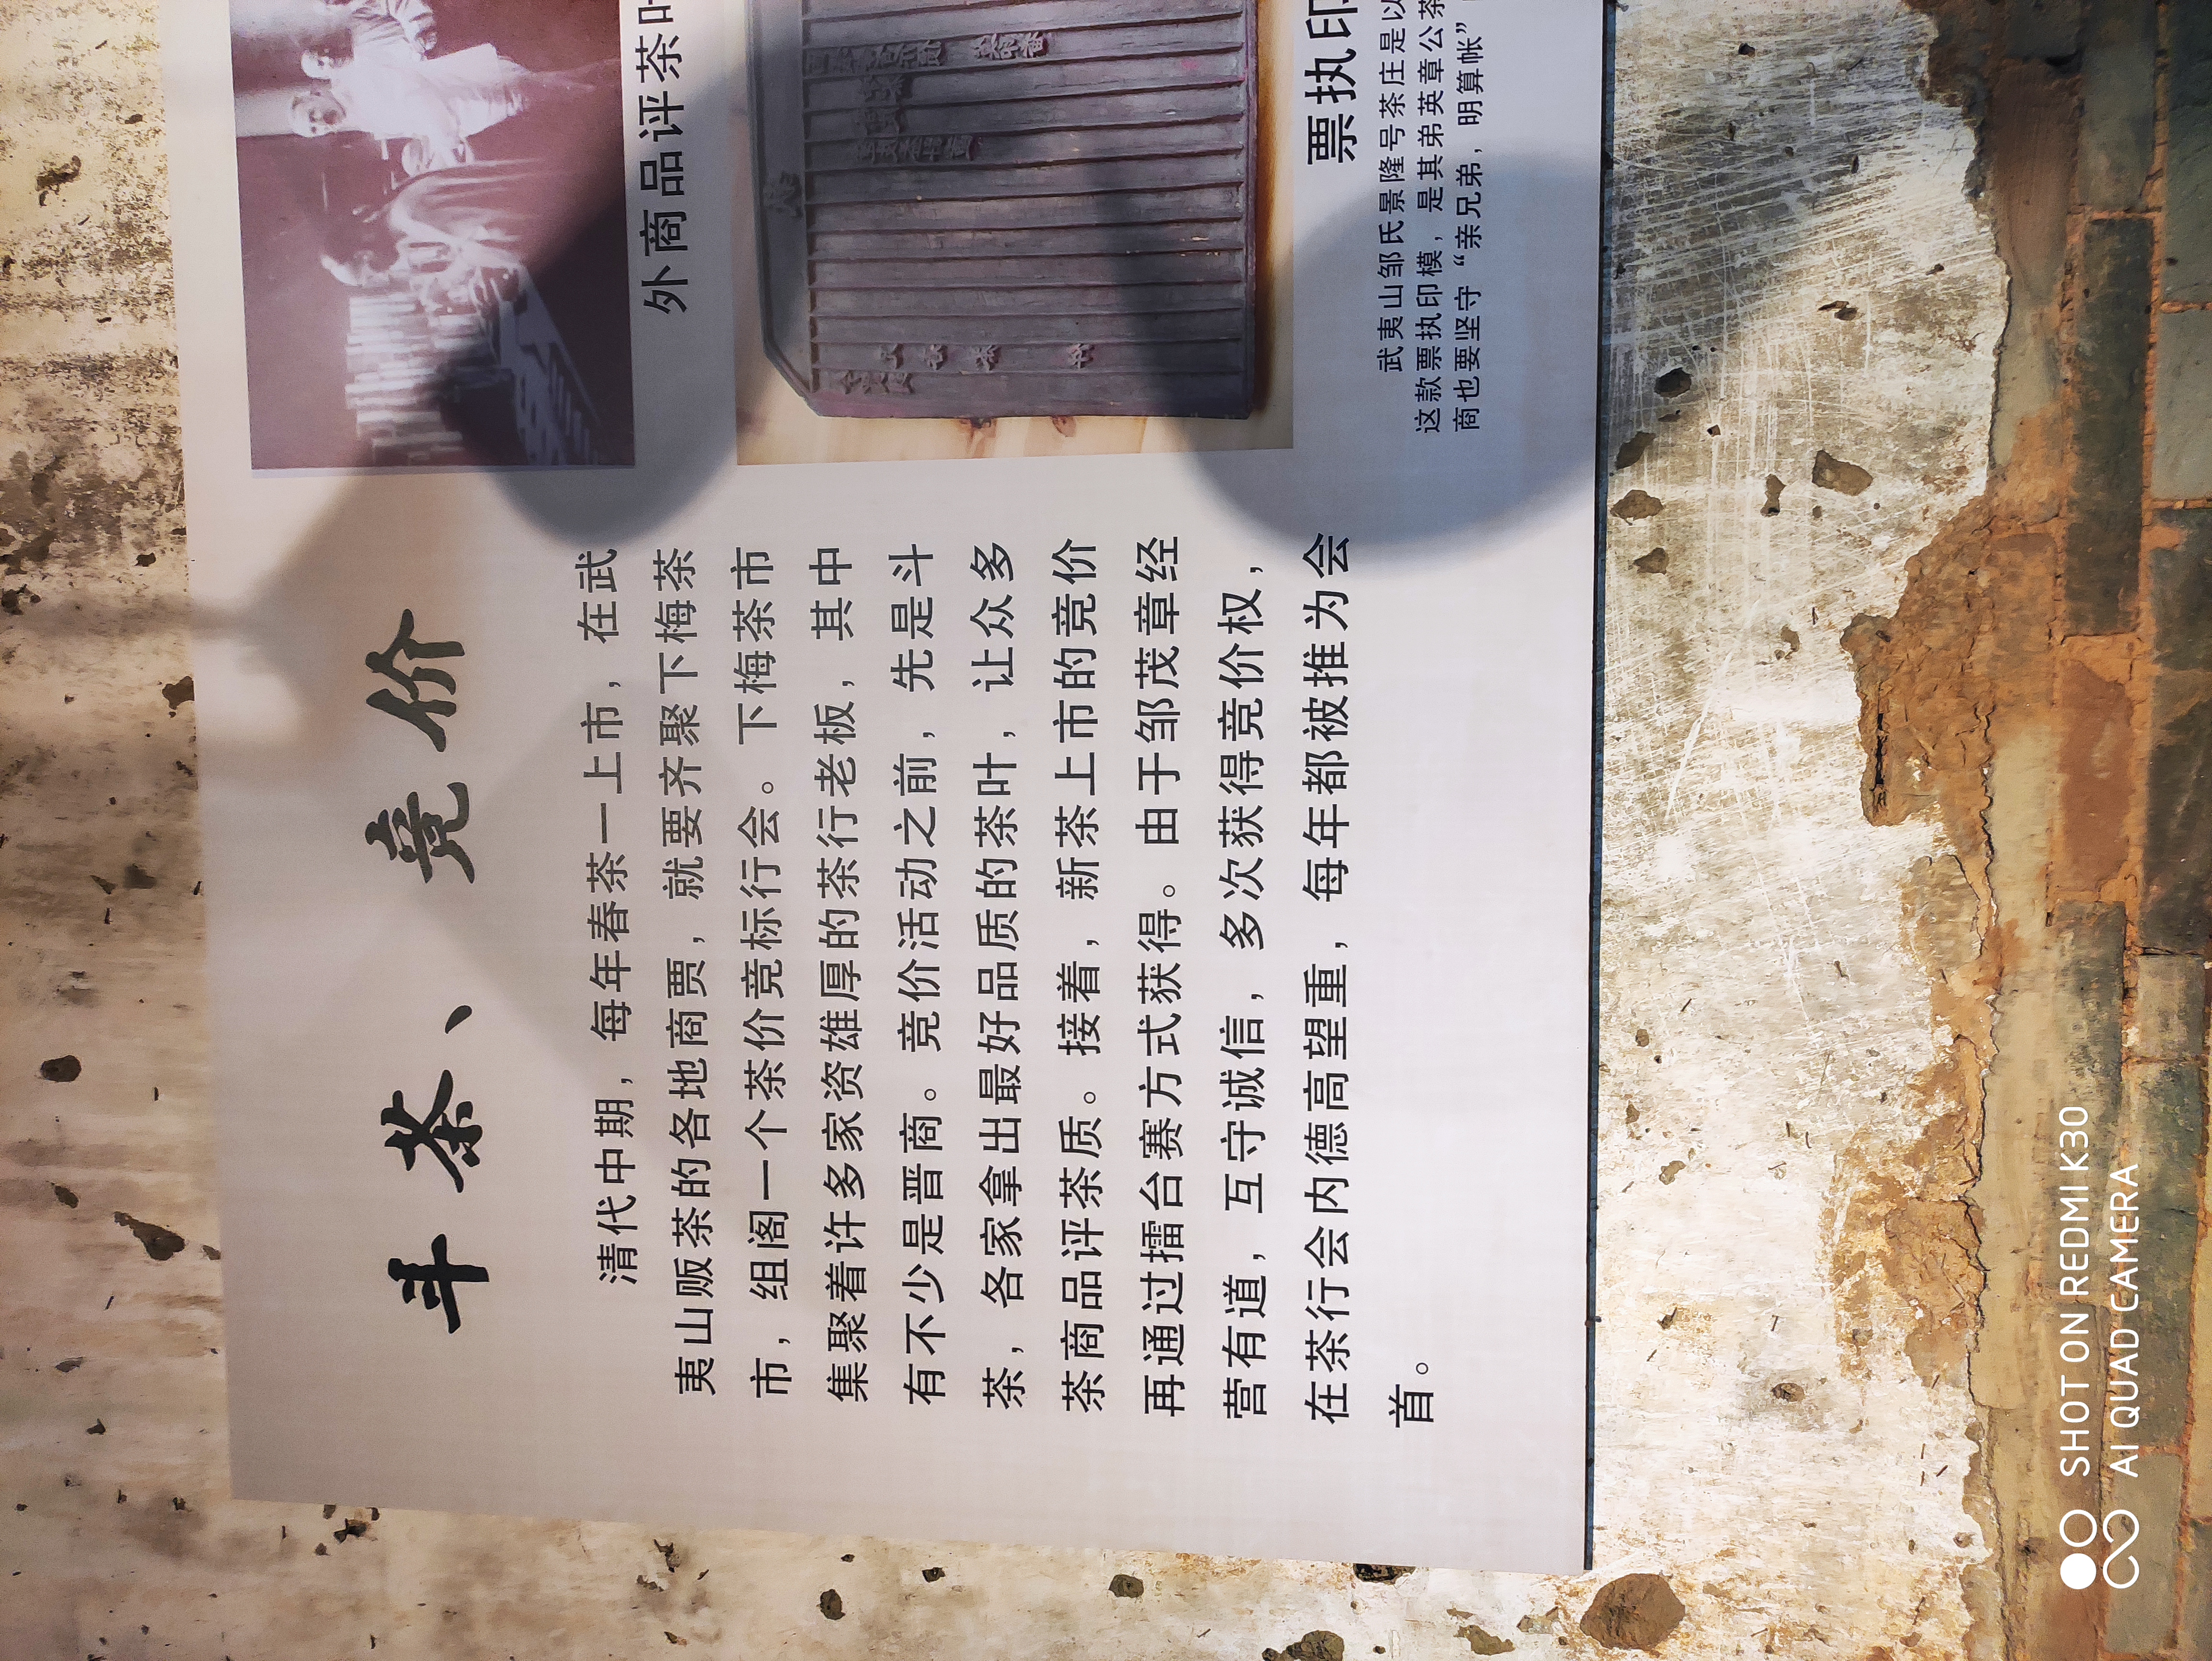 斗茶、竞价
清代中期，每年春茶一上市，在武
夷山贩茶的各地商贾，就要齐聚下梅茶
市，组阁一个茶价竞标行会。下梅茶市
集聚着许多家资雄厚的茶行老板，其中
有不少是晋商。竞价活动之前，先是斗
茶，各家拿出最好品质的茶叶，让众多
茶商品评茶质。接着，新茶上市的竞价
再通过擂台赛方式获得。由于邹茂章经
营有道，互守诚信，多次获得竞价权，
在茶行会内德高望重，每年都被推为会
首。
外商品评茶叶
票执印
武夷山邹氏景隆号茶庄是以
这款票执印模，是其弟英章公茶
商也要坚守“亲兄弟，明算帐”
SHOT ON REDMI K30
AI QUAD CAMERA